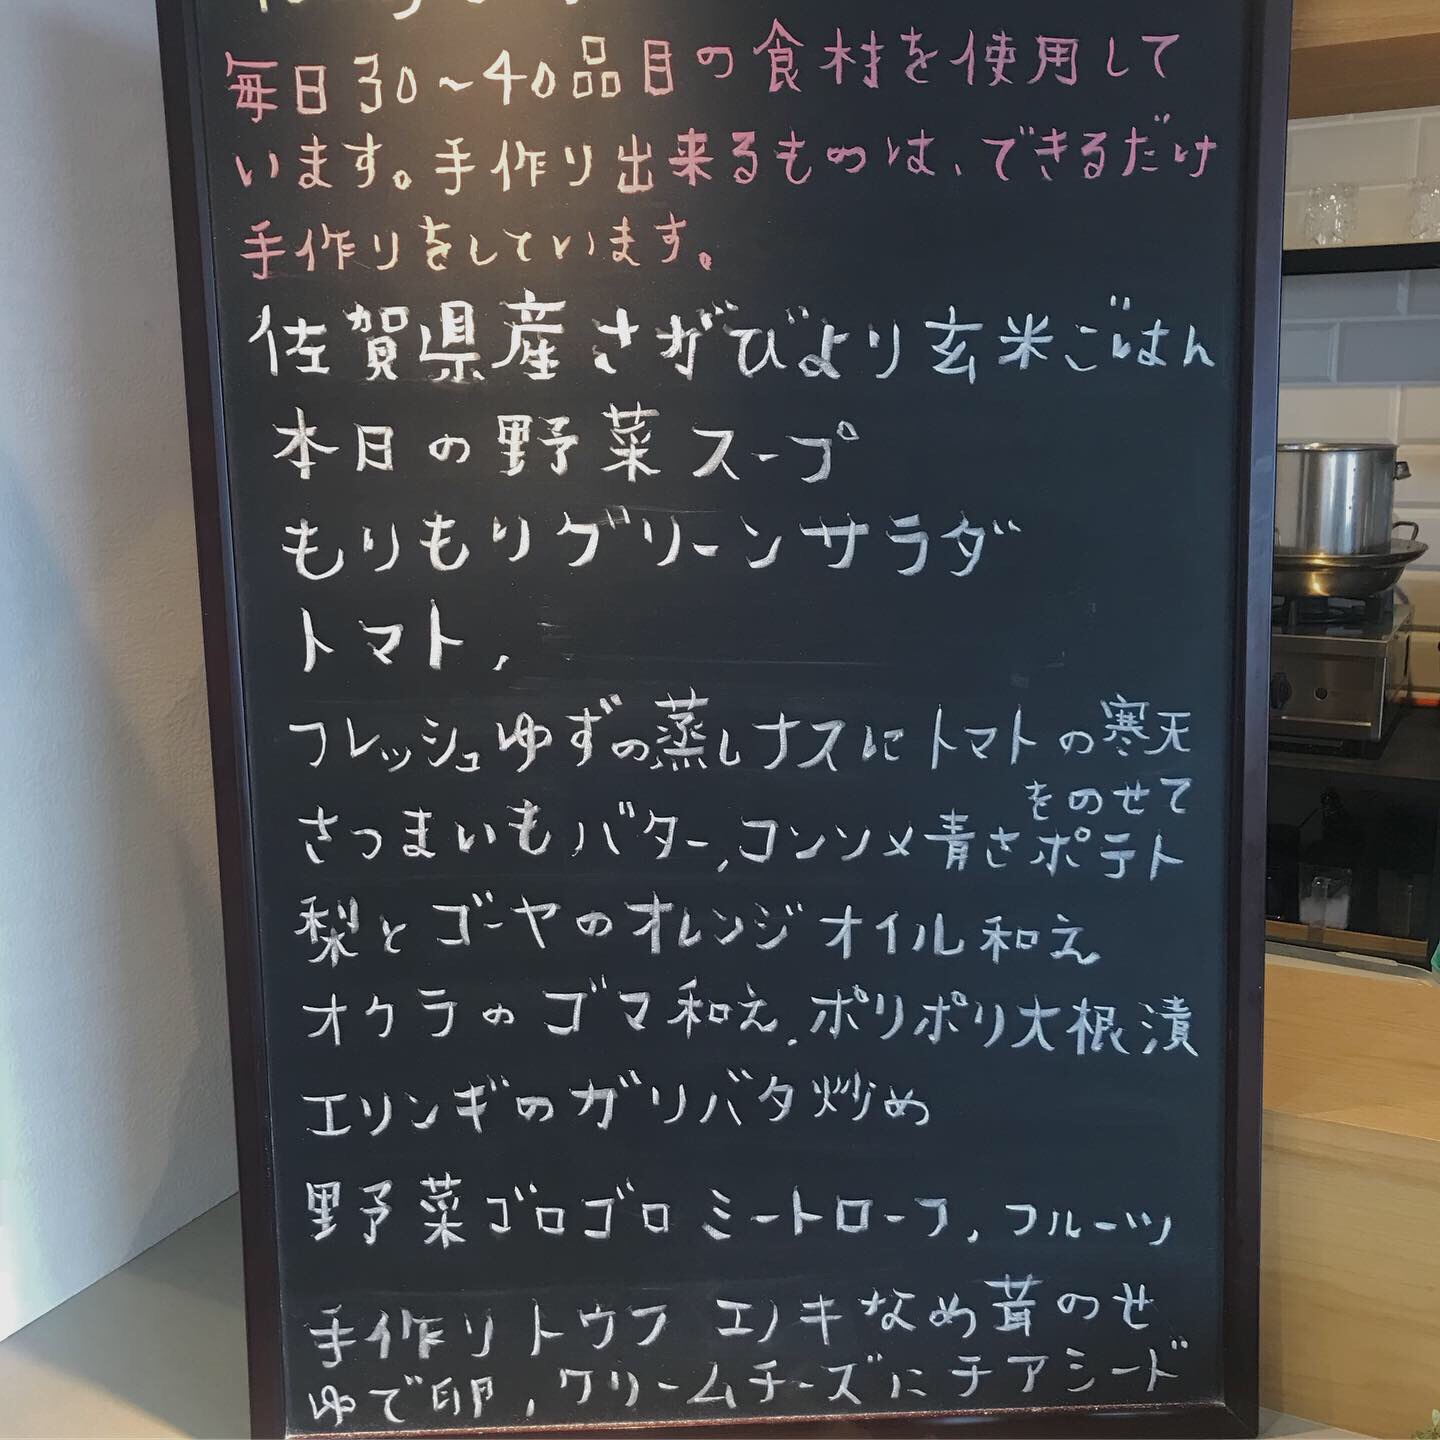 毎日30～40品目の食材を使用して
います。手作り出来るものは、できるだけ
手作りをしています。
佐賀県産さがびより玄米ごはん
本日の野菜スープ
もりもりグリーンサラダ
トマト、
フレッシュゆずの蒸しナスにトマトの寒天
をのせて
さつまいもバター、コンソメ青さポテト
梨とゴーヤのオレンジオイル和え
オクラのゴマ和え、ポリポリ大根漬
エリンギのガリバタ炒め
野菜ゴロゴロミートローフ、フルーツ
手作りトウフ エノキなめ茸のせ
ゆで卵、クリームチーズにチアシード